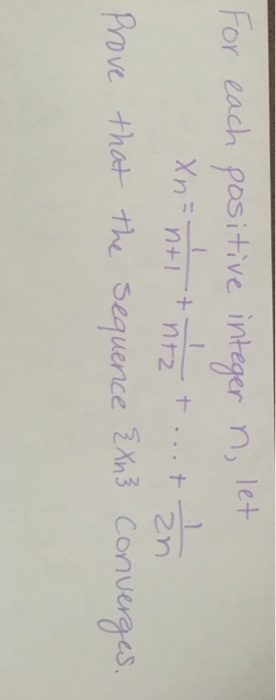 For each positive integer n, let
Xn = 1/(n+1) + 1/(n+2) + ... + 1/(2n)
Prove that the sequence {Xn} converges.